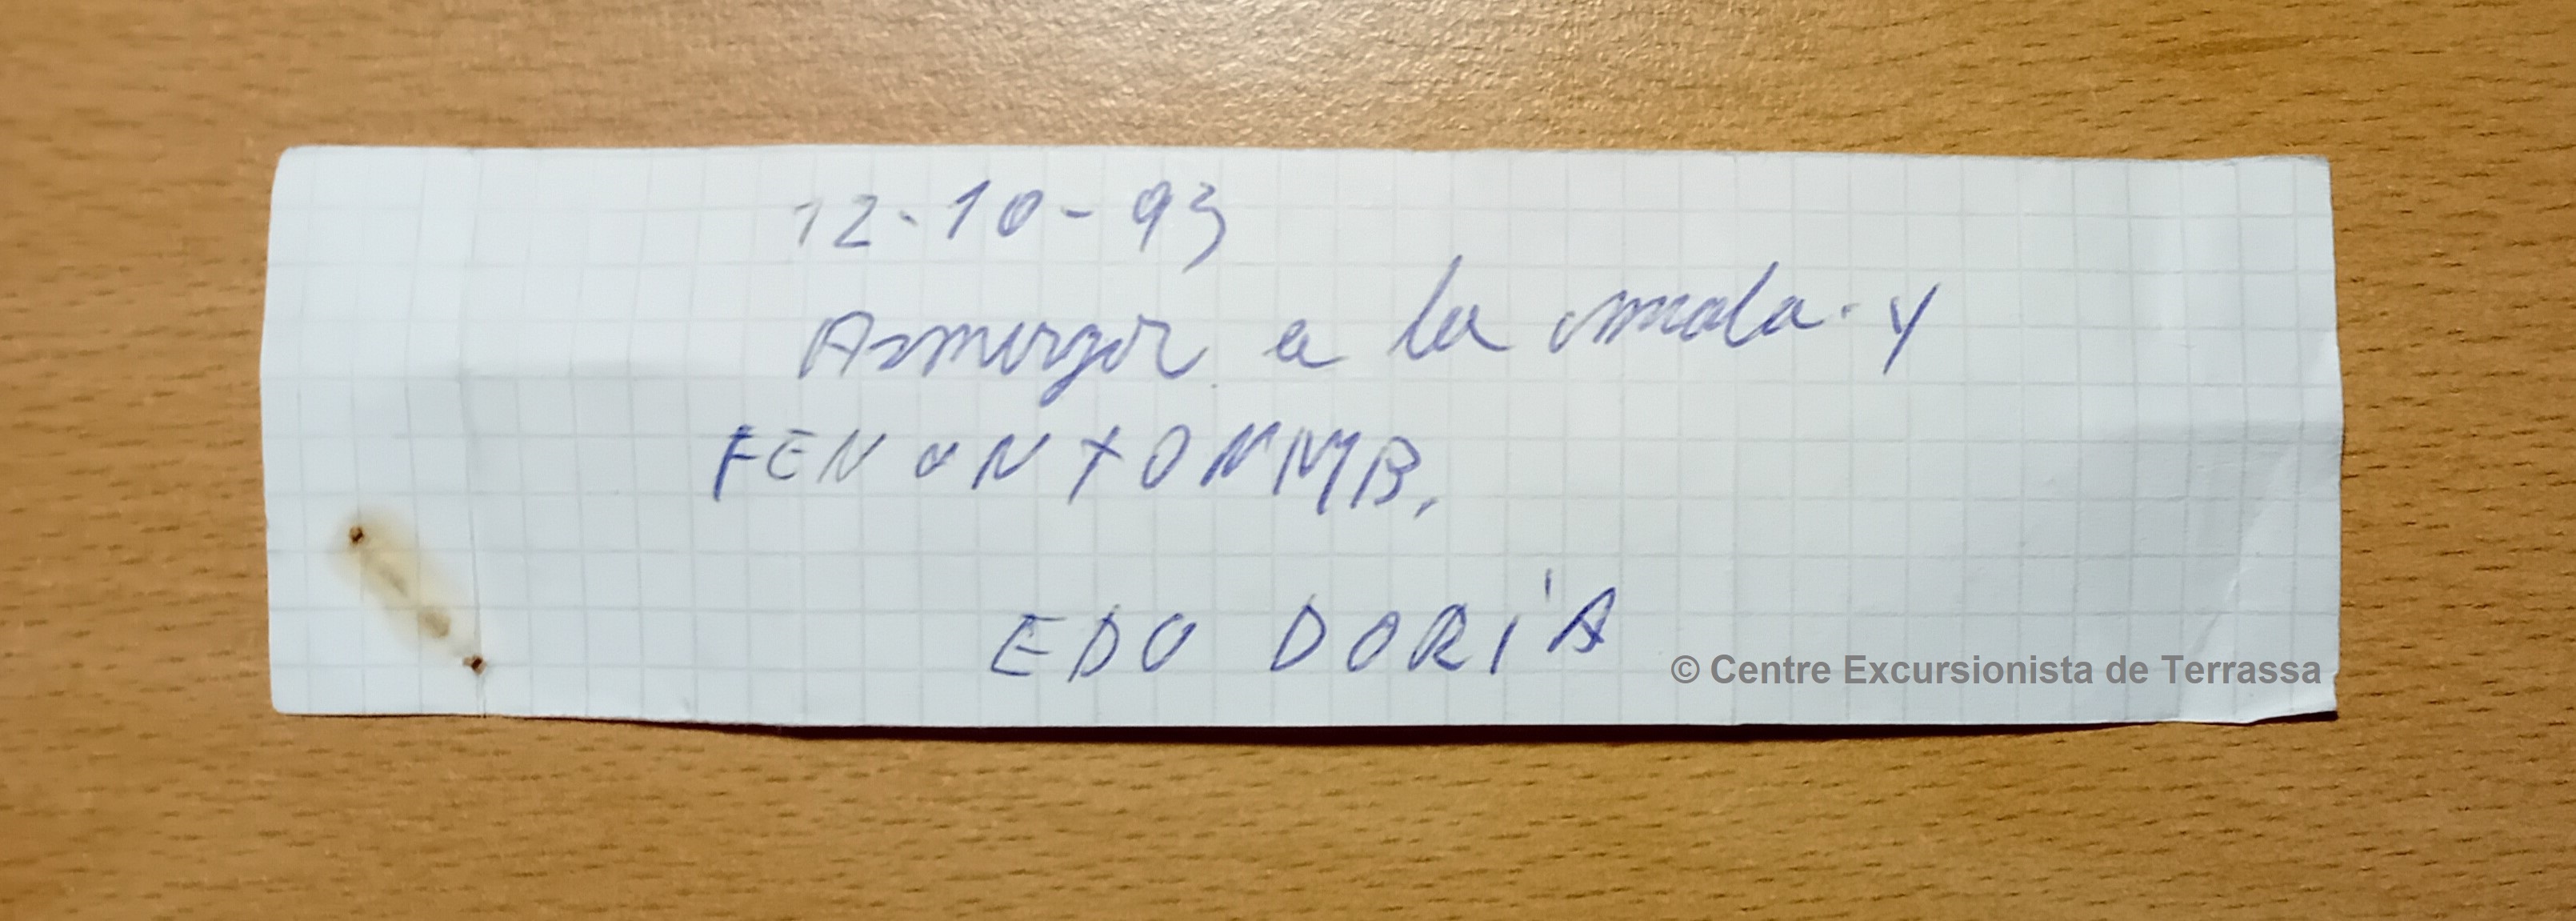 12-10-93
Asmorzor a la mola. y
FEN UN XONMB.
EDU DORÍA
© Centre Excursionista de Terrassa